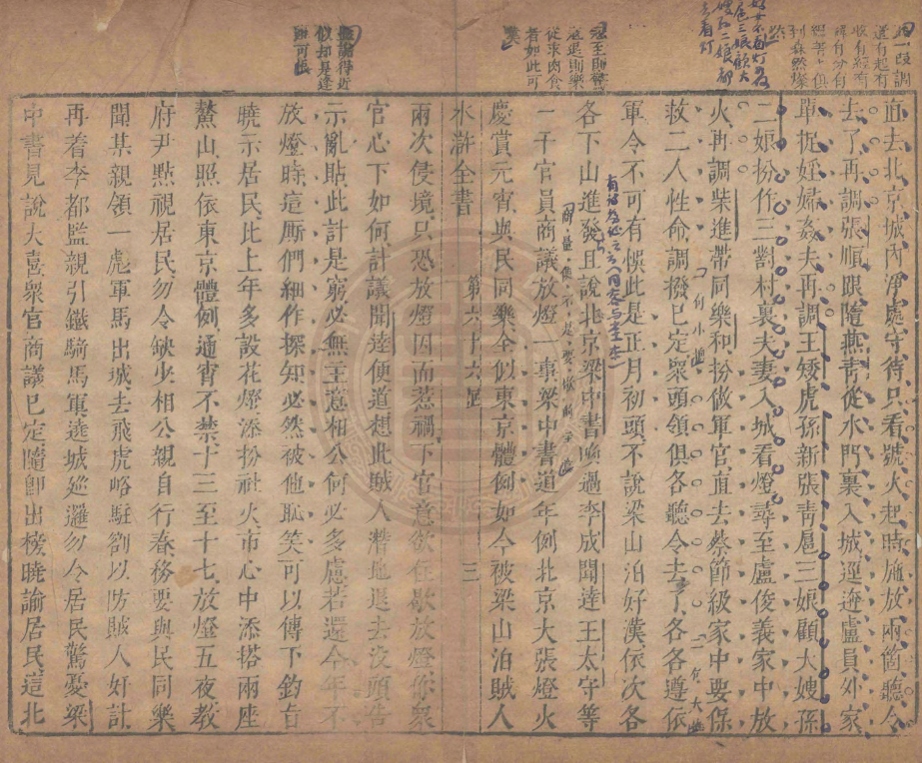 還有起有
面去北京城內淨處守待只看號火起時施放兩箇聽令
去了再調張順跟隨燕青從水門裏入城逕遶盧員外家
單捉婬婦姦夫再調王矮虎孫新張青扈三娘顧大嫂孫
二娘扮作三對村裏夫妻入城看燈尋至盧俊義家中放
火再調柴進帶同樂和扮做軍官直去蔡節級家中要保
救二人性命調撥已定眾頭領俱各聽令去了各各遵依
軍令不可有悞此是正月初頭不說梁山泊好漢依次各
各下山進發且說北京梁中書喚過李成聞達王太守等
一干官員商議放燈一事梁中書道年例北京大張燈火
慶賞元宵與民同樂全似東京體例如今被梁山泊賊人
從求肉食
者如此可
水滸全書 第六十六回 三
兩次侵境只恐放燈因而惹禍下官意欲住歇放燈你眾
官心下如何計議聞達便道想此賊人潛地退去沒頭告
示亂貼此計是窮必無主意相公何必多慮若還今年不
放燈時這厮們細作探知必然被他恥笑可以傳下鈞旨
曉示居民比上年多設花燈添扮社火市心中添搭兩座
鰲山照依東京體例通宵不禁十三至十七放燈五夜教
府尹點視居民勿令缺少相公親自行春務要與民同樂
聞某親領一彪軍馬出城去飛虎峪駐劄以防賊人奸計
再着李都監親引鐵騎馬軍遶城巡邏勿令居民驚憂梁
中書見說大喜眾官商議已定隨即出榜曉諭居民這北
論得近
似却是逢